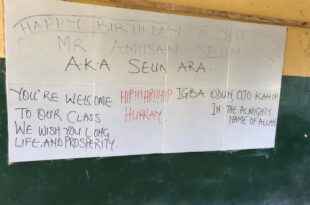 HAPPY BIRTHDAY TO YOU
MR AMUSAN SEUN
AKA SEUN ARA.
YOU'RE WELCOME
TO OUR CLASS
WE WISH YOU LONG
LIFE. AND PROSPERITY.
HIP!!! HIP!! HIP
HURRAY
IGBA ODUN, ODO KAN NI
IN THE ALMIGHTY
NAME OF ALLAH